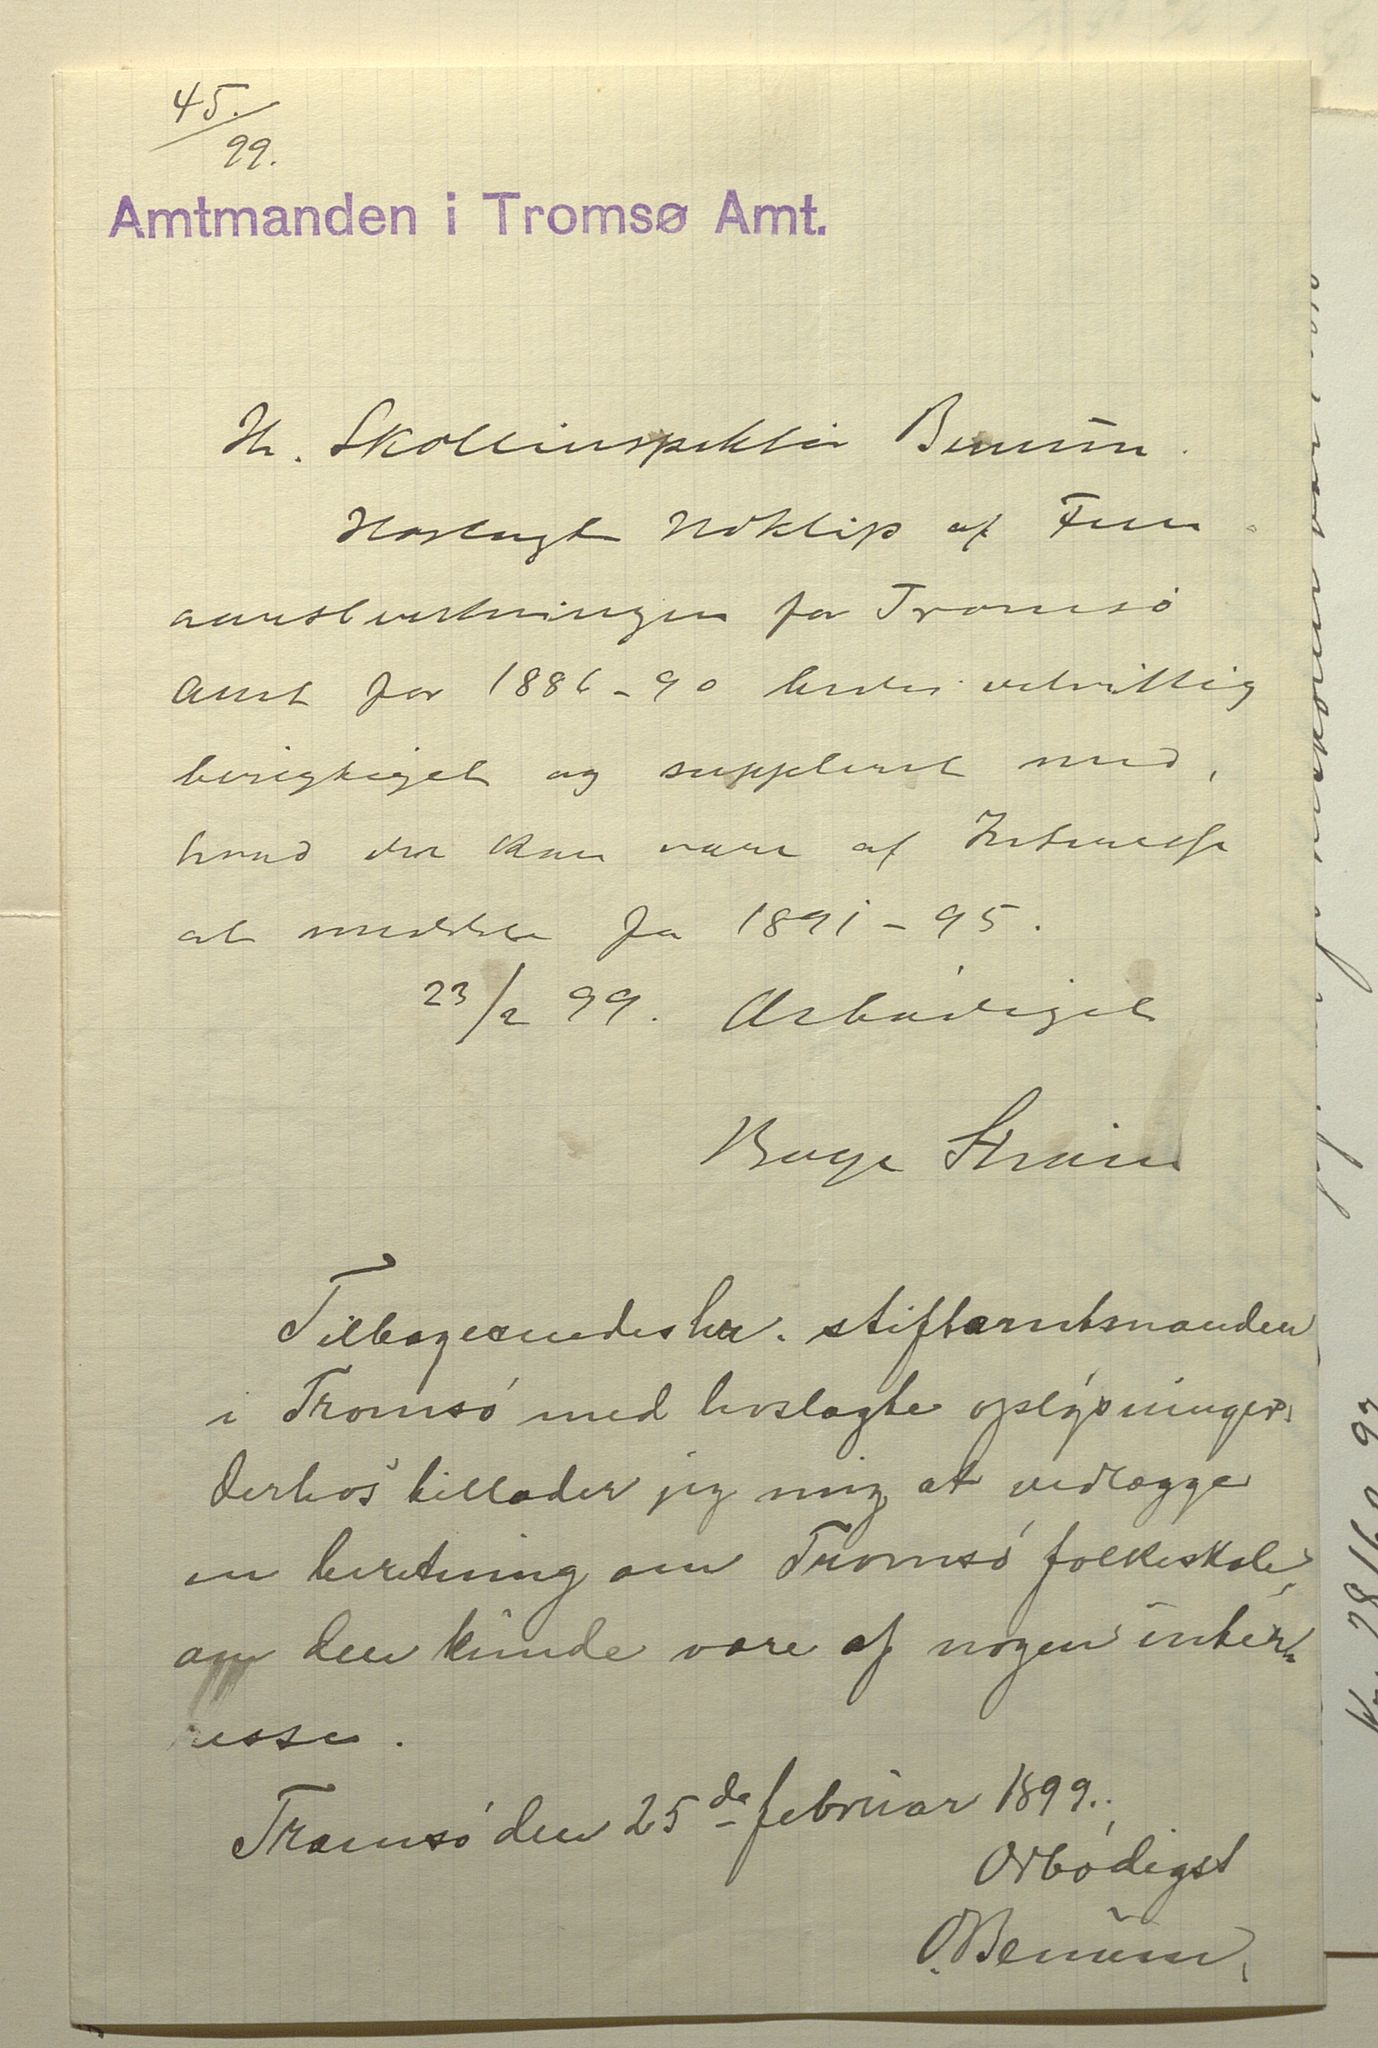 45.
99.
Amtmanden i Tromsø Amt.
Hr. Skolinspektør Benum.
Hoslagt Udklip af Fem-
aarsberetningen for Tromsø
Amt for 1886-90 bedes velvillig
berigtiget og suppleret med,
hvad der kan være af Interesse
at meddele for 1891-95.
23/2 99. Ærbødigst
Boye Strøm
Tilbagesendes hr. stiftamtmanden
i Tromsø med hoslagte oplysninger.
Derhos tillader jeg mig at vedlægge
en beretning om Tromsø folkeskole,
om den kunde være af nogen inter-
esse.
Tromsø den 25de februar 1899.
Ærbødigst
O. Benum.